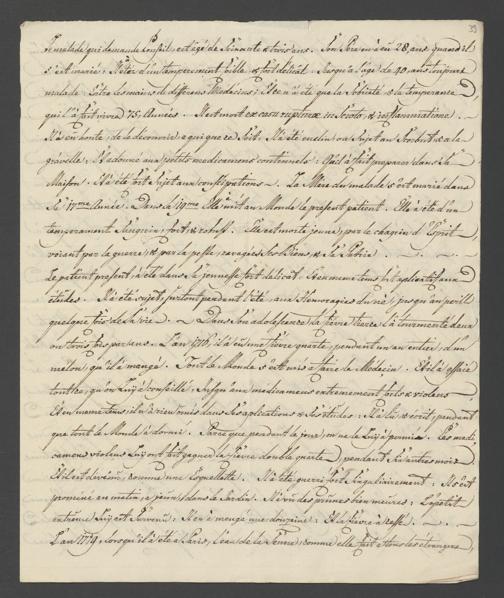 33
Le malade qui demande Conseil, est agé de Soixante & trois ans. Son Pere en a eu 28, ans quand il
s'est marié. Il étoit d'un temperament foible, & fort delicat. Jusqu'a l'age de 40 ans toujours
malade, Entre les mains de differens Medecins: & ce n'a été que la Sobrieté & la temperance
qui l'a fait vivre 75, Années. Il est mort ex casu ruptura in Scroto, & inflammatione.
N'a eu honte, de la découvrir a qui que ce Soit. Il a été enclin ou Sujet au Scorbut & a la
gravelle. S'est adonné aux petits medicamens continuels: Qu'il a fait preparer dans Sa
Maison. Il a été fort Sujet aux constipations. La Mere du malade s'est marié dans
Sa Année. Dans Sa 19me Elle mit au Monde le present patient. Elle a été d'un
temperament Sanguin, fort & robust. Elle est morte jeune, par le chagrin d'Esprit,
voiant par la guerre, & par la peste, ravagés Ses Biens, & Sa Patrie.
Le patient present, a été dans Sa jeunesse fort délicat. & en meme tems fort applicatif aux
études. Il a été sujet, surtout pendant l'été, aux Hemoragies du né, jusqu'au peril
quelque fois de la vie. Dans Son adolescence, la fievre tierce l'a tourmenté deux
ou trois fois par ans. L'an 1716, il a eû une fievre quarte, pendant un an entier, d'un
mélon, qu'il a mangé. Tout le Monde s'est mis a faire le Medecin. Et il a essaié
tout ce, qu'on Luy a conseillé, Jusqu'aux médicamens extremement forts & violens.
Et en meme tems, il n'a rien omis dans Ses applications & Ses études: Il a lû, & écrit, pendant
que tout le Monde a dormi. Parce que pendant le jour, on ne la Luy a permis. Les medi-
camens violens Luy ont fait gagner la fievre double quarte, pendant Six autres mois.
Et il est devenu, comme une Esquellette. Il a été guerri fort Singulierement. Il s'est
promené un matin, a jeun, dans le Jardin. Il a vû des prunes bien meures. L'apetit
extreme Luy est Survenu: Il en a mangé une douzaine: Et la fievre a cessé.
L'an 1719, lorsqu'il a été a Paris, l'eau de la Seine, comme elle fait a tous les étrangers,